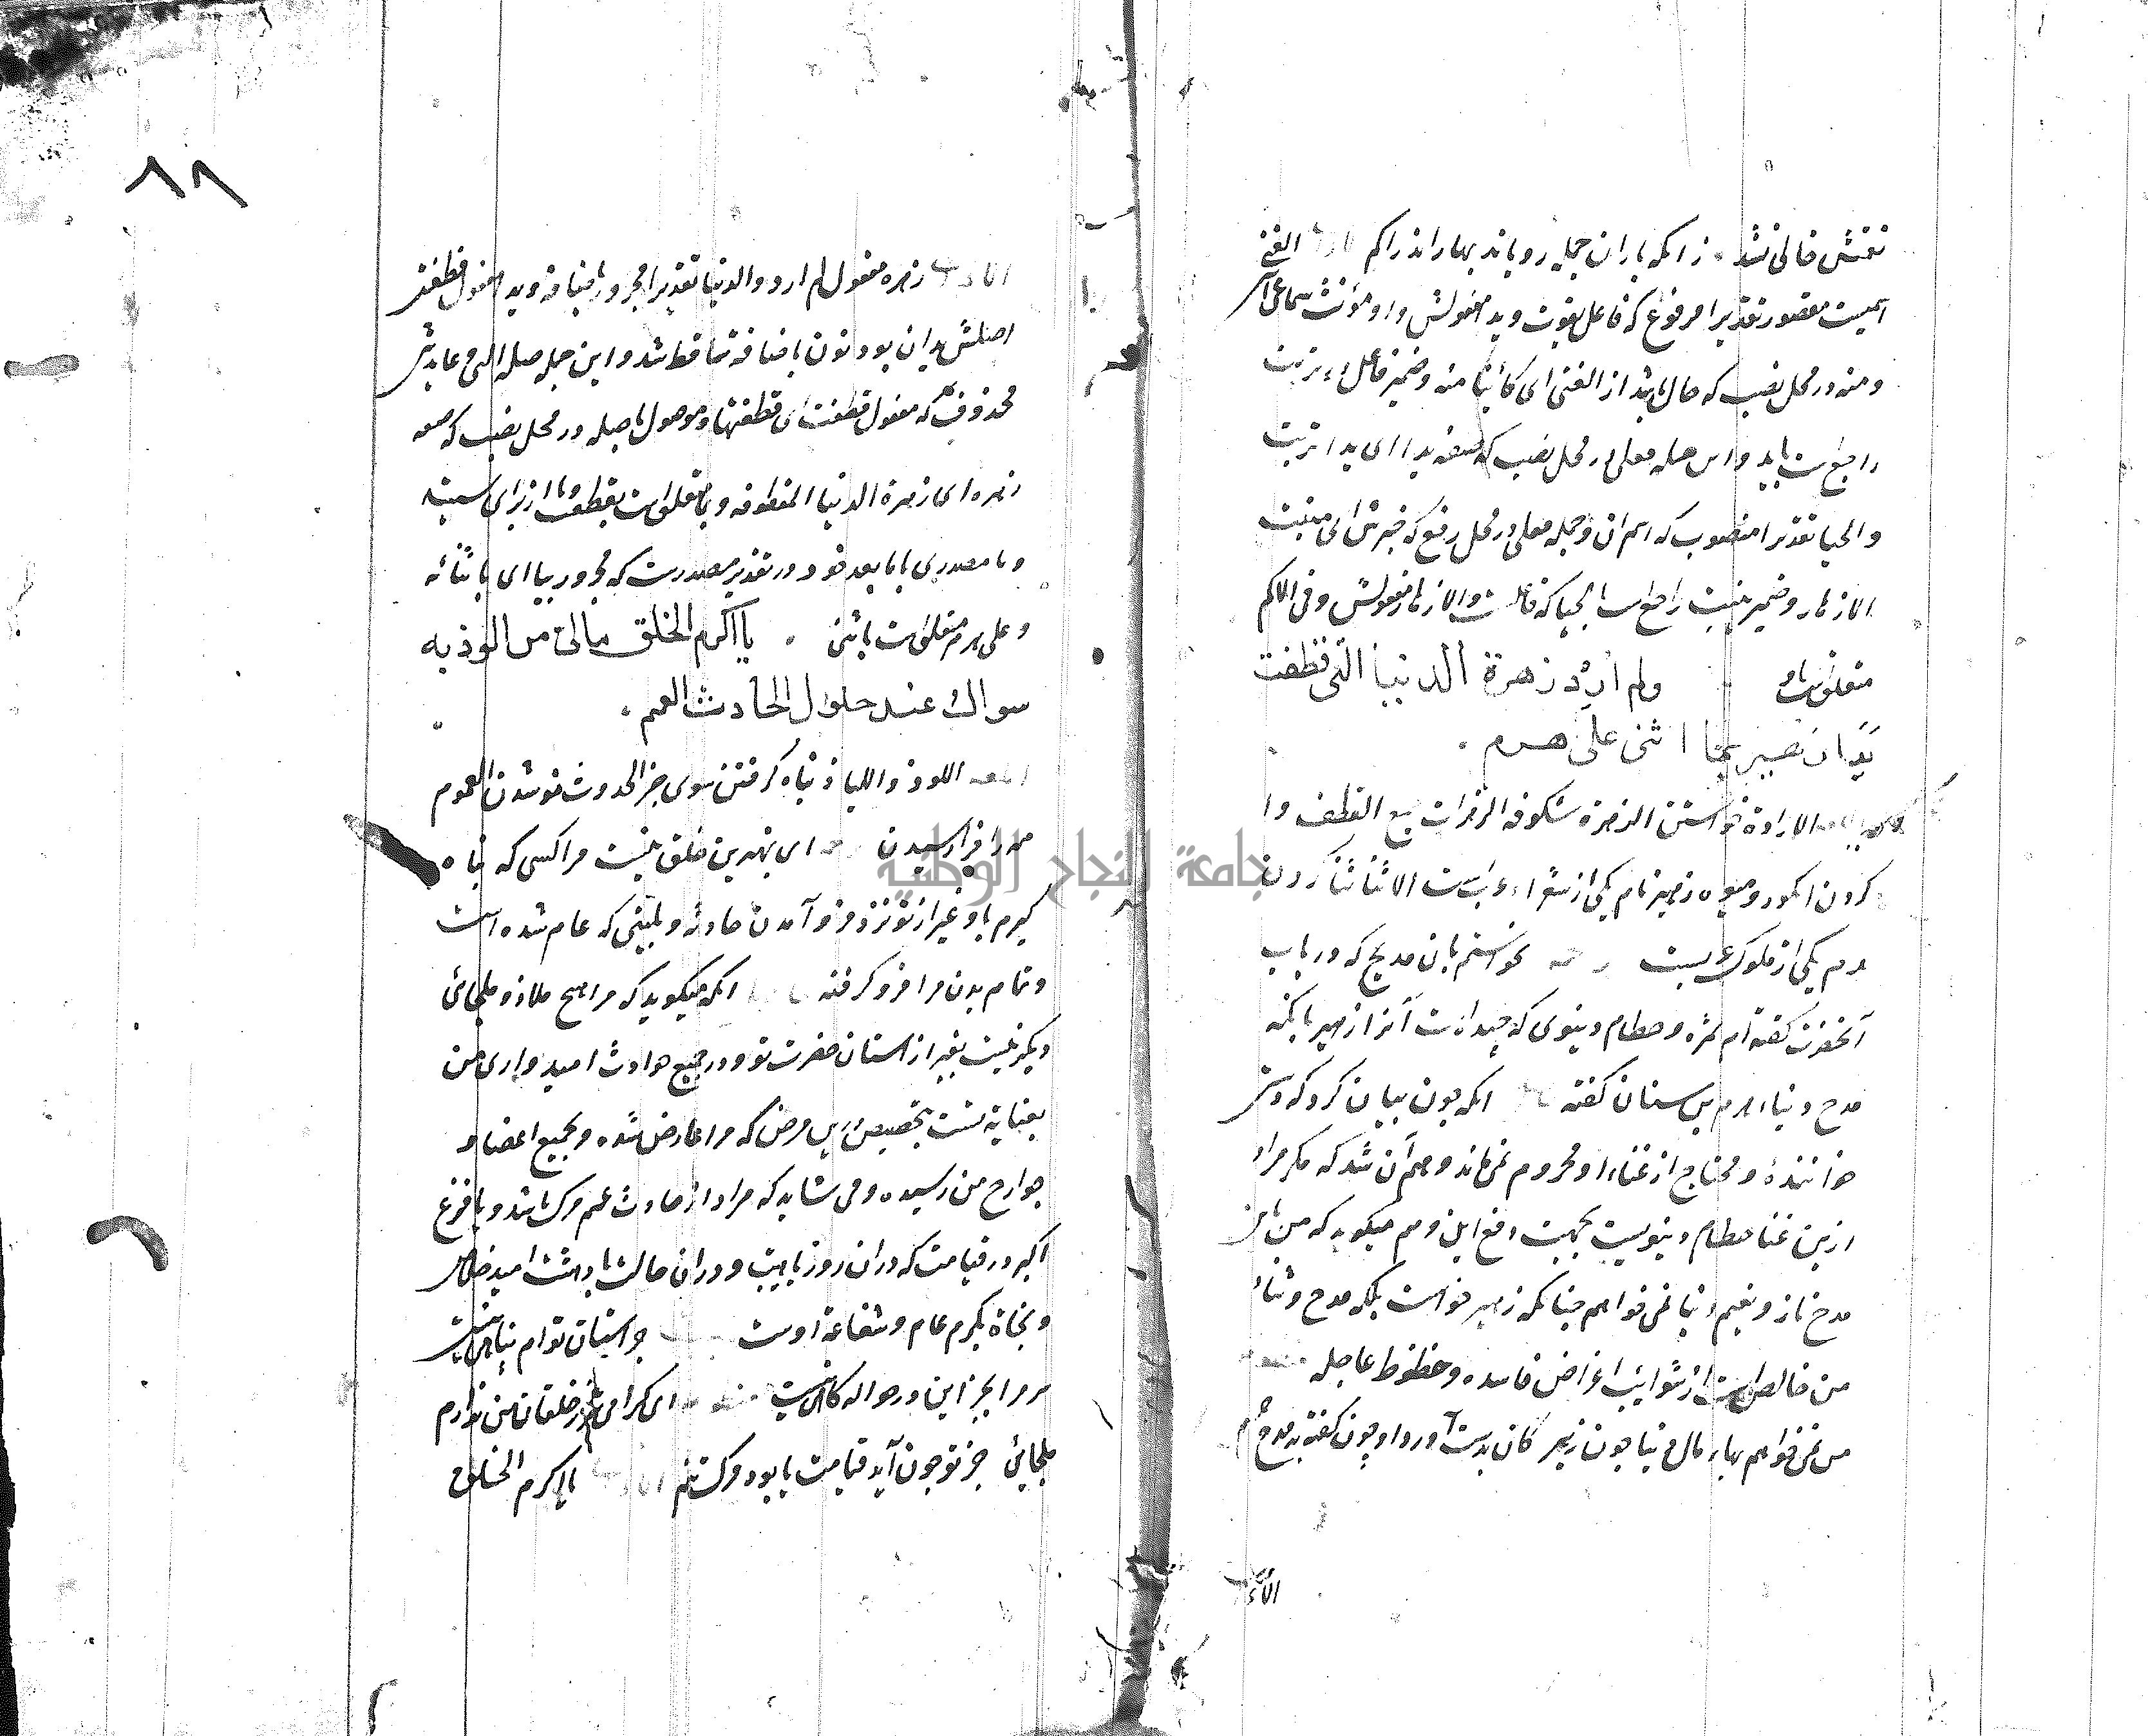 نفتش خالی نشد زانکه باران جمله رویاند بهار اندر اکم الغنی
اسمیست مقصور تقدیرا مرفوع که فاعل یفوت و ید مفعولش و او مؤنث سماعی
و منه در محل نصب که حال باشد از الغنی ای کائنا منه و ضمیر فاعل تربت
راجع بید و این جمله فعلی در محل نصب که صفه یدا ای یدا تربت
و الحیا تقدیرا منصوب که اسم ان و جمله فعلی در محل رفع که خبرش ای منبت
الازهار و ضمیر ینبت راجع بالحیا که فاعلست و الازهار مفعولش و فی الاکم
متعلق ولم ارد زهرة الدنيا التي قطفت
يدا زهير بما اثنى على هرم
الارادة خواستن الزهرة شکوفه الزهرات جمع القطف وا
کردن انگور و میوه زهیر نام یکی از شعراء عربست الاثنا ثنا کردن
هرم یکی از ملوک عربست نخواستم بان مدیح که در باب
آنحضرت گفته‌ام ثمره و حطام دنیوی که چیدست آنرا زهیر بانکه
مدح دنیاء هرم بن سنان گفته انکه چون بیان کرد که
خواننده و محتاج از غناء او محروم نمی‌ماند و هم آن شد که مگر مراد
ازین غنا حطام دنیویست بجهت دفع این وهم میگوید که من باین
مدح ناز و نعیم دنیا نمی‌خواهم چنانکه زهیر خواست بلکه مدح و ثناء
من خالص است از شوائب اغراض فاسده و حظوظ عاجله
من نمی‌خواهم بهاء مال دنیا چون زهیر کان بدست آورد او چون گفته بد مدح
۸۸
زهره مفعول لم ارد و الدنیا تقدیرا مجرور باضافه و ید مفعول قطفت
اصلش یدان بود نون باضافه ساقط شد و این جمله صله التی و عایدش
محذوف که مفعول قطفت ای قطفتها و موصول با صله در محل نصب که صفه
زهره ای زهرة الدنیا المقطوفه و بما متعلق است بقطفت و با از برای سببیه
و ما مصدری با ما بعد خود در تقدیر مصدرست که مجرور بباء ای باثنائه
و علی هرم متعلق است باثنی يا اكرم الخلق مالى من الوذ به
سواك عند حلول الحادث العمم
اللوذ و اللیاذ پناه گرفتن سوی جز الحدوث نو شدن العموم
همه را فرا رسیدن ای بهترین خلق نیست مرا کسی که پناه
گیرم باو غیر از تو نزد فرو آمدن حادثه و بلیتی که عام شده است
و تمام بدن مرا فرو گرفته انکه میگوید که مرا هیچ ملاذ و ملجائی
دیگر نیست بغیر از استان حضرت تو و در جمیع حوادث امیدواری من
بعنایة تست بتخصیص این مرض که مرا عارض شده و بجمیع اعضا و
جوارح من رسیده و می شاید که مراد از حادث عمم مرگ باشد و با فزع
اکبر در قیامت که در ان روز باهیبت و در ان حالت با دهشت امید خلاص
و نجاة بکرم عام و شفاعة اوست جز استان توام پناهی نیست
سر مرا بجز این در حواله گاهی نیست ای گرامی‌تر ز خلقان من ندارم
ملجائی جز تو چون آید قیامت یا بود مرگ تنم یا اکرم الخلق